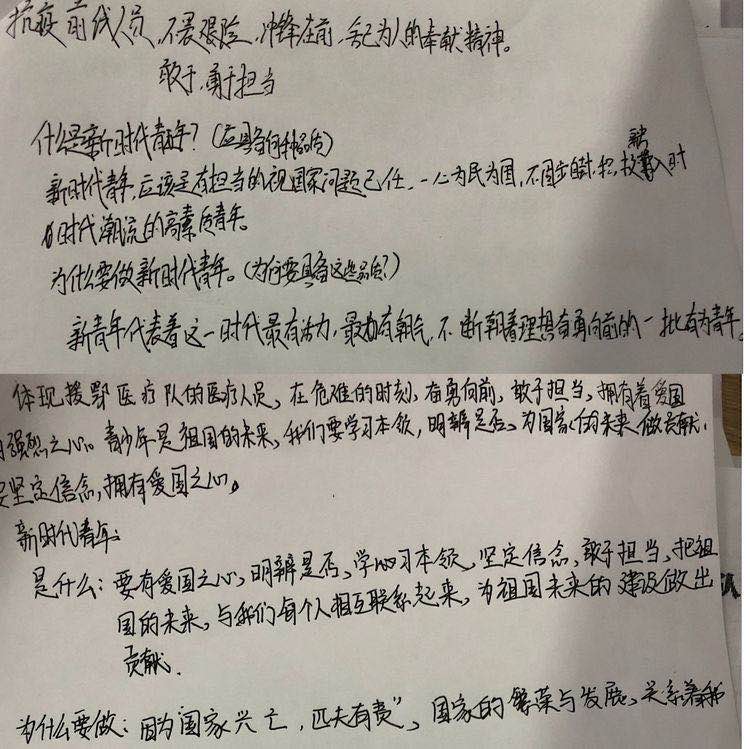 抗疫前线人员,不畏艰险,冲锋在前,舍己为人的奉献精神。
敢于,勇于担当
什么是新时代青年?(应具备何种品质)
新时代青年,应该是有担当的视国家问题己任,一心为民为国,不固步自封,积投入时
时代潮流的高素质青年。
为什么要做新时代青年。(为何要具备这些品质?)
新青年代表着这一时代最有活力,最有朝气,不断朝着理想奋勇向前的一批有为青年。
体现援鄂医疗队的医疗人员,在危难的时刻,奋勇向前,敢于担当,拥有着爱国
强烈之心。青少年是祖国的未来,我们要学习本领,明辨是否。为国家的未来做贡献.
坚定信念,拥有爱国之心。
新时代青年:
是什么:要有爱国之心,明辨是否、学习本领、坚定信念,敢于担当,把祖
国的未来,与我们每个人相互联系起来,为祖国未来的建设做出
贡献.
为什么要做:因为"国家兴亡,匹夫有责",国家的繁荣与发展,关系着我